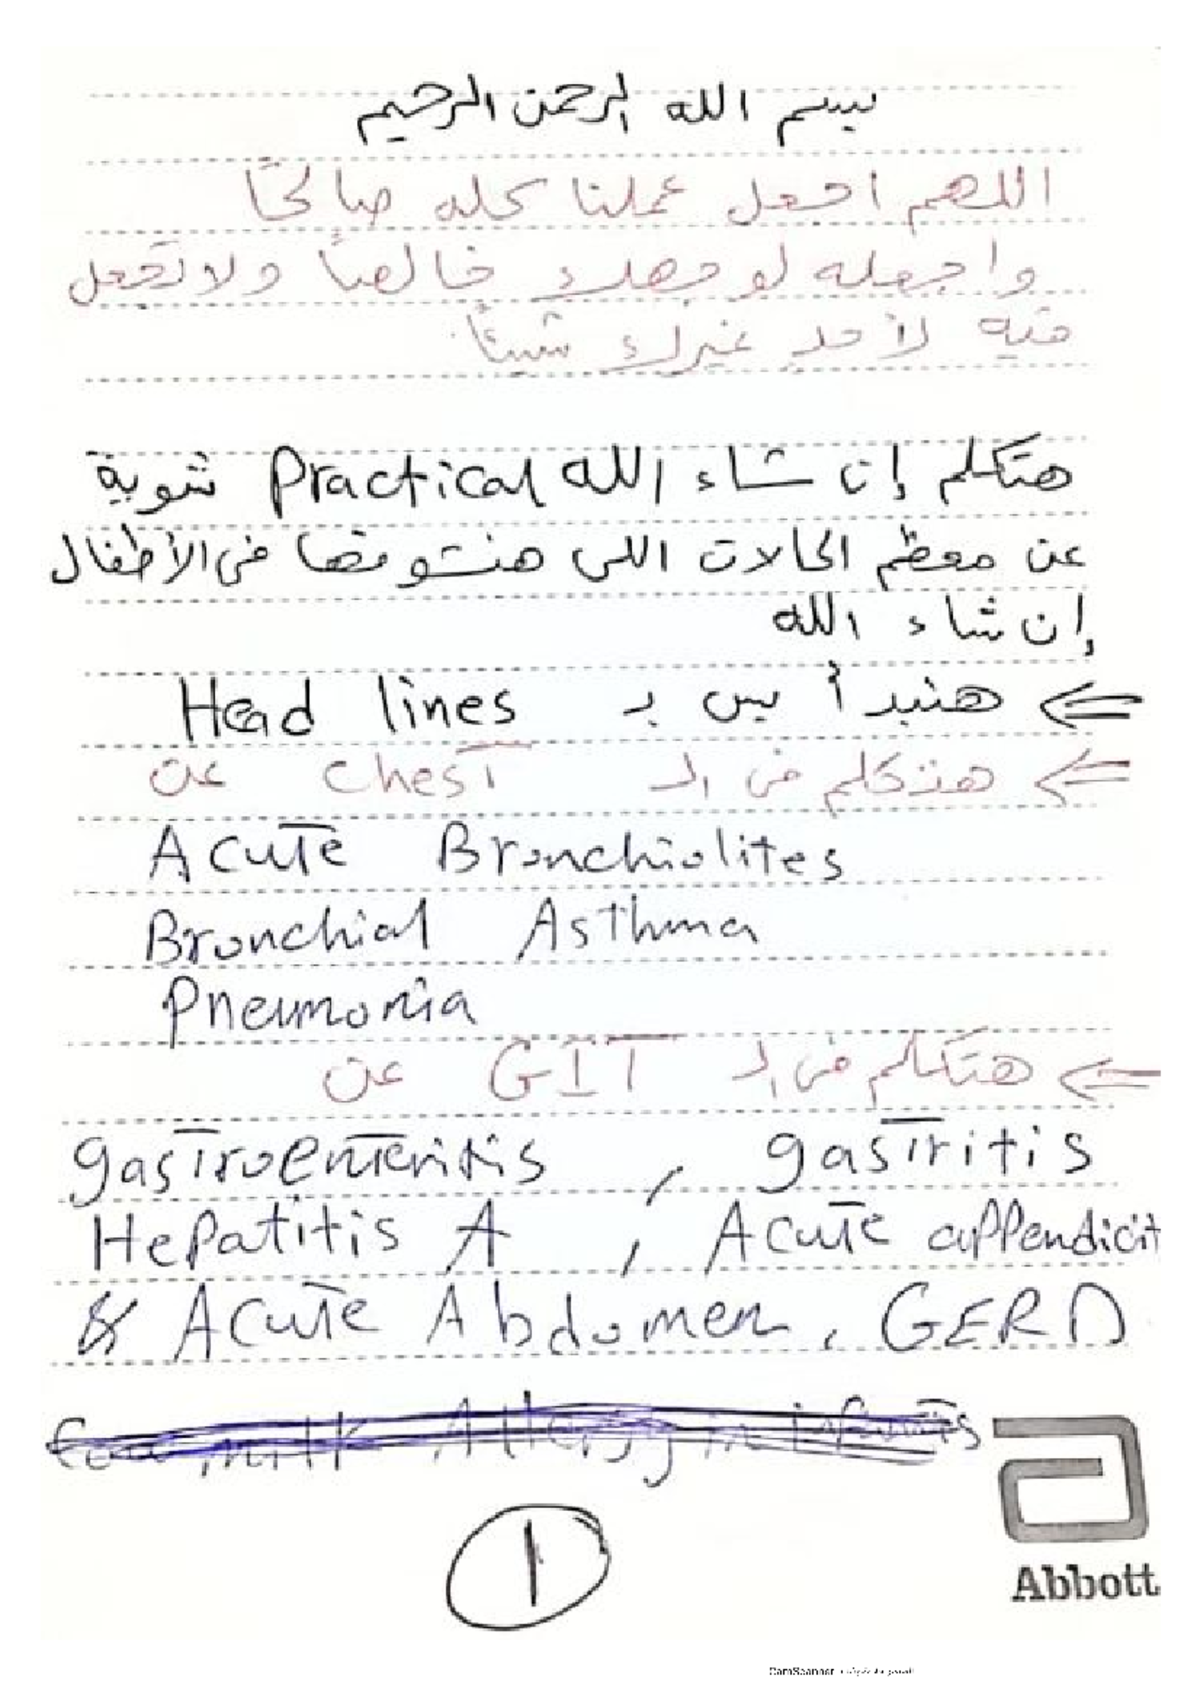 بسم الله الرحمن الرحيم
اللهم اجعل عملنا كله صالحًا
واجعله لوجهك خالصًا ولا تجعل
فيه لأحد غيرك شيئًا
هتكلم إن شاء الله Practical شوية
عن معظم الحالات اللى هنشوفها فى الأطفال
إن شاء الله
⇐ هنبدأ بس بـ Head lines
⇐ هنتكلم فى الـ chest عن
Acute Bronchiolites
Bronchial Asthma
Pneumonia
⇐ هنتكلم فى الـ GIT عن
gastroenteritis , gastritis
Hepatitis A , Acute appendicit
& Acute Abdomen , GERD
milk Allergy in infants
1
Abbott
CamScanner